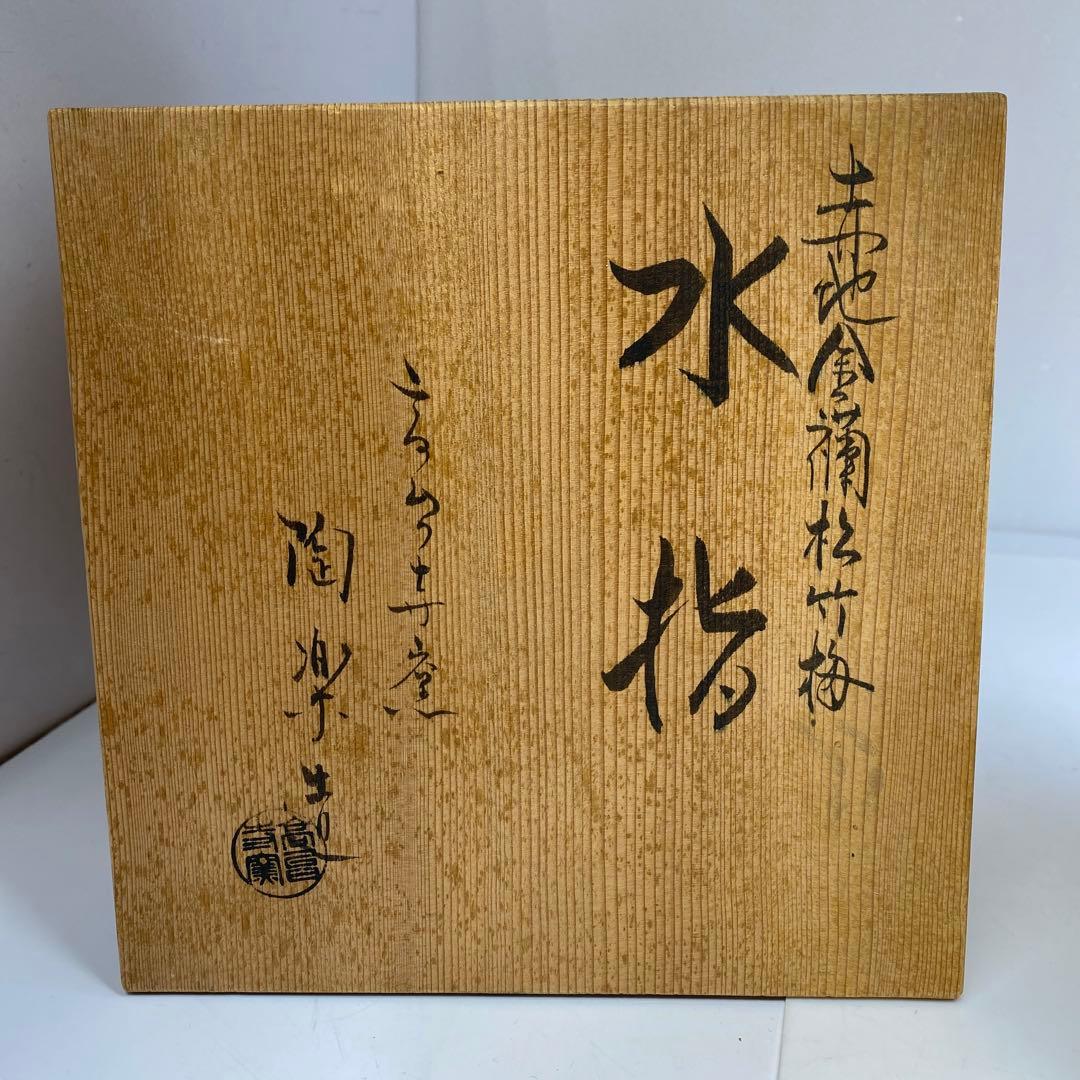 赤地金襴松竹梅
水指
高台寺窯
陶楽造
高台寺窯